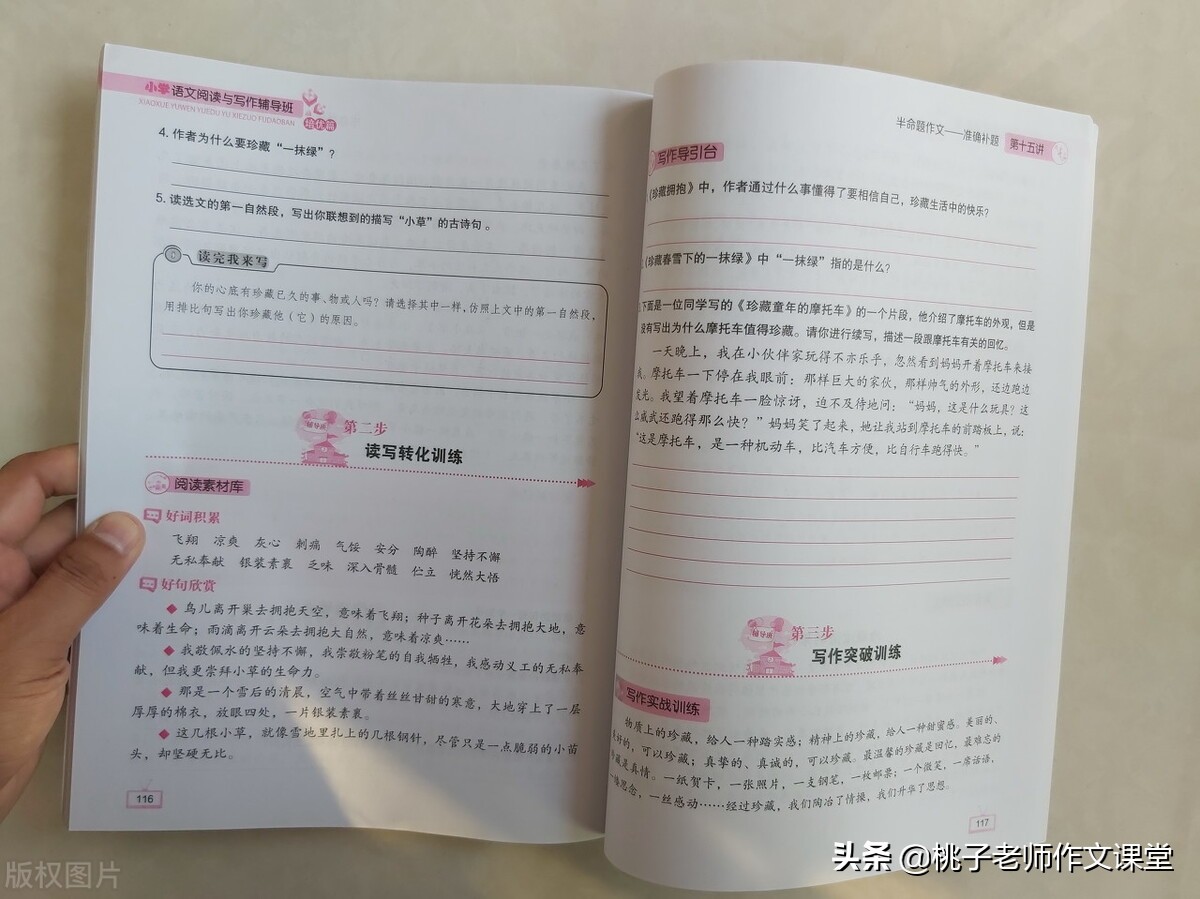 小学语文阅读与写作辅导班
XIAOXUE YUWEN YUEDU YU XIEZUO FUDAOBAN
培优篇
4. 作者为什么要珍藏“一抹绿”？
5. 读选文的第一自然段，写出你联想到的描写“小草”的古诗句。
读完我来写
你的心底有珍藏已久的事、物或人吗？请选择其中一样，仿照上文中的第一自然段，
用排比句写出你珍藏他（它）的原因。
第二步
读写转化训练
阅读素材库
好词积累
飞翔 凉爽 灰心 刺痛 气馁 安分 陶醉 坚持不懈
无私奉献 银装素裹 乏味 深入骨髓 伫立 恍然大悟
好句欣赏
◆ 鸟儿离开巢去拥抱天空，意味着飞翔；种子离开花朵去拥抱大地，意
味着生命；雨滴离开云朵去拥抱大自然，意味着凉爽……
◆ 我敬佩水的坚持不懈，我崇敬粉笔的自我牺牲，我感动义工的无私奉
献，但我更崇拜小草的生命力。
◆ 那是一个雪后的清晨，空气中带着丝丝甘甜的寒意，大地穿上了一层
厚厚的棉衣，放眼四处，一片银装素裹。
◆ 这几根小草，就像雪地里扎上的几根钢针，尽管只是一点脆弱的小苗
头，却坚硬无比。
116
半命题作文——准确补题 第十五讲
写作导引台
《珍藏拥抱》中，作者通过什么事懂得了要相信自己，珍藏生活中的快乐？
《珍藏春雪下的一抹绿》中“一抹绿”指的是什么？
下面是一位同学写的《珍藏童年的摩托车》的一个片段，他介绍了摩托车的外观，但是
没有写出为什么摩托车值得珍藏。请你进行续写，描述一段跟摩托车有关的回忆。
一天晚上，我在小伙伴家玩得不亦乐乎，忽然看到妈妈开着摩托车来接
我。摩托车一下停在我眼前：那样巨大的家伙，那样帅气的外形，还边跑边
发光。我望着摩托车一脸惊讶，迫不及待地问：“妈妈，这是什么玩具？这
么威武还跑得那么快？”妈妈笑了起来，她让我站到摩托车的前踏板上，说：
“这是摩托车，是一种机动车，比汽车方便，比自行车跑得快。”
第三步
写作突破训练
写作实战训练
物质上的珍藏，给人一种踏实感；精神上的珍藏，给人一种甜蜜感。美丽的、
美好的，可以珍藏；真挚的、真诚的，可以珍藏。最温馨的珍藏是回忆，最难忘的
珍藏是真情。一纸贺卡，一张照片，一支钢笔，一枚邮票；一个微笑，一席话语，
思念，一丝感动……经过珍藏，我们陶冶了情操，我们升华了思想。
117
版权图片
头条 @桃子老师作文课堂